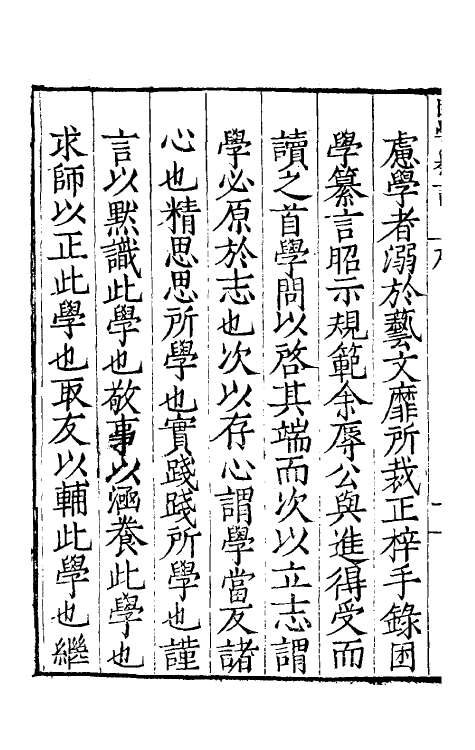 慮學者溺於藝文靡所裁正梓手錄困
學纂言昭示規範余辱公與進得受而
讀之首學問以啓其端而次以立志謂
學必原於志也次以存心謂學當反諸
心也精思思所學也實踐踐所學也謹
言以默識此學也敬事以涵養此學也
求師以正此學也取友以輔此學也繼